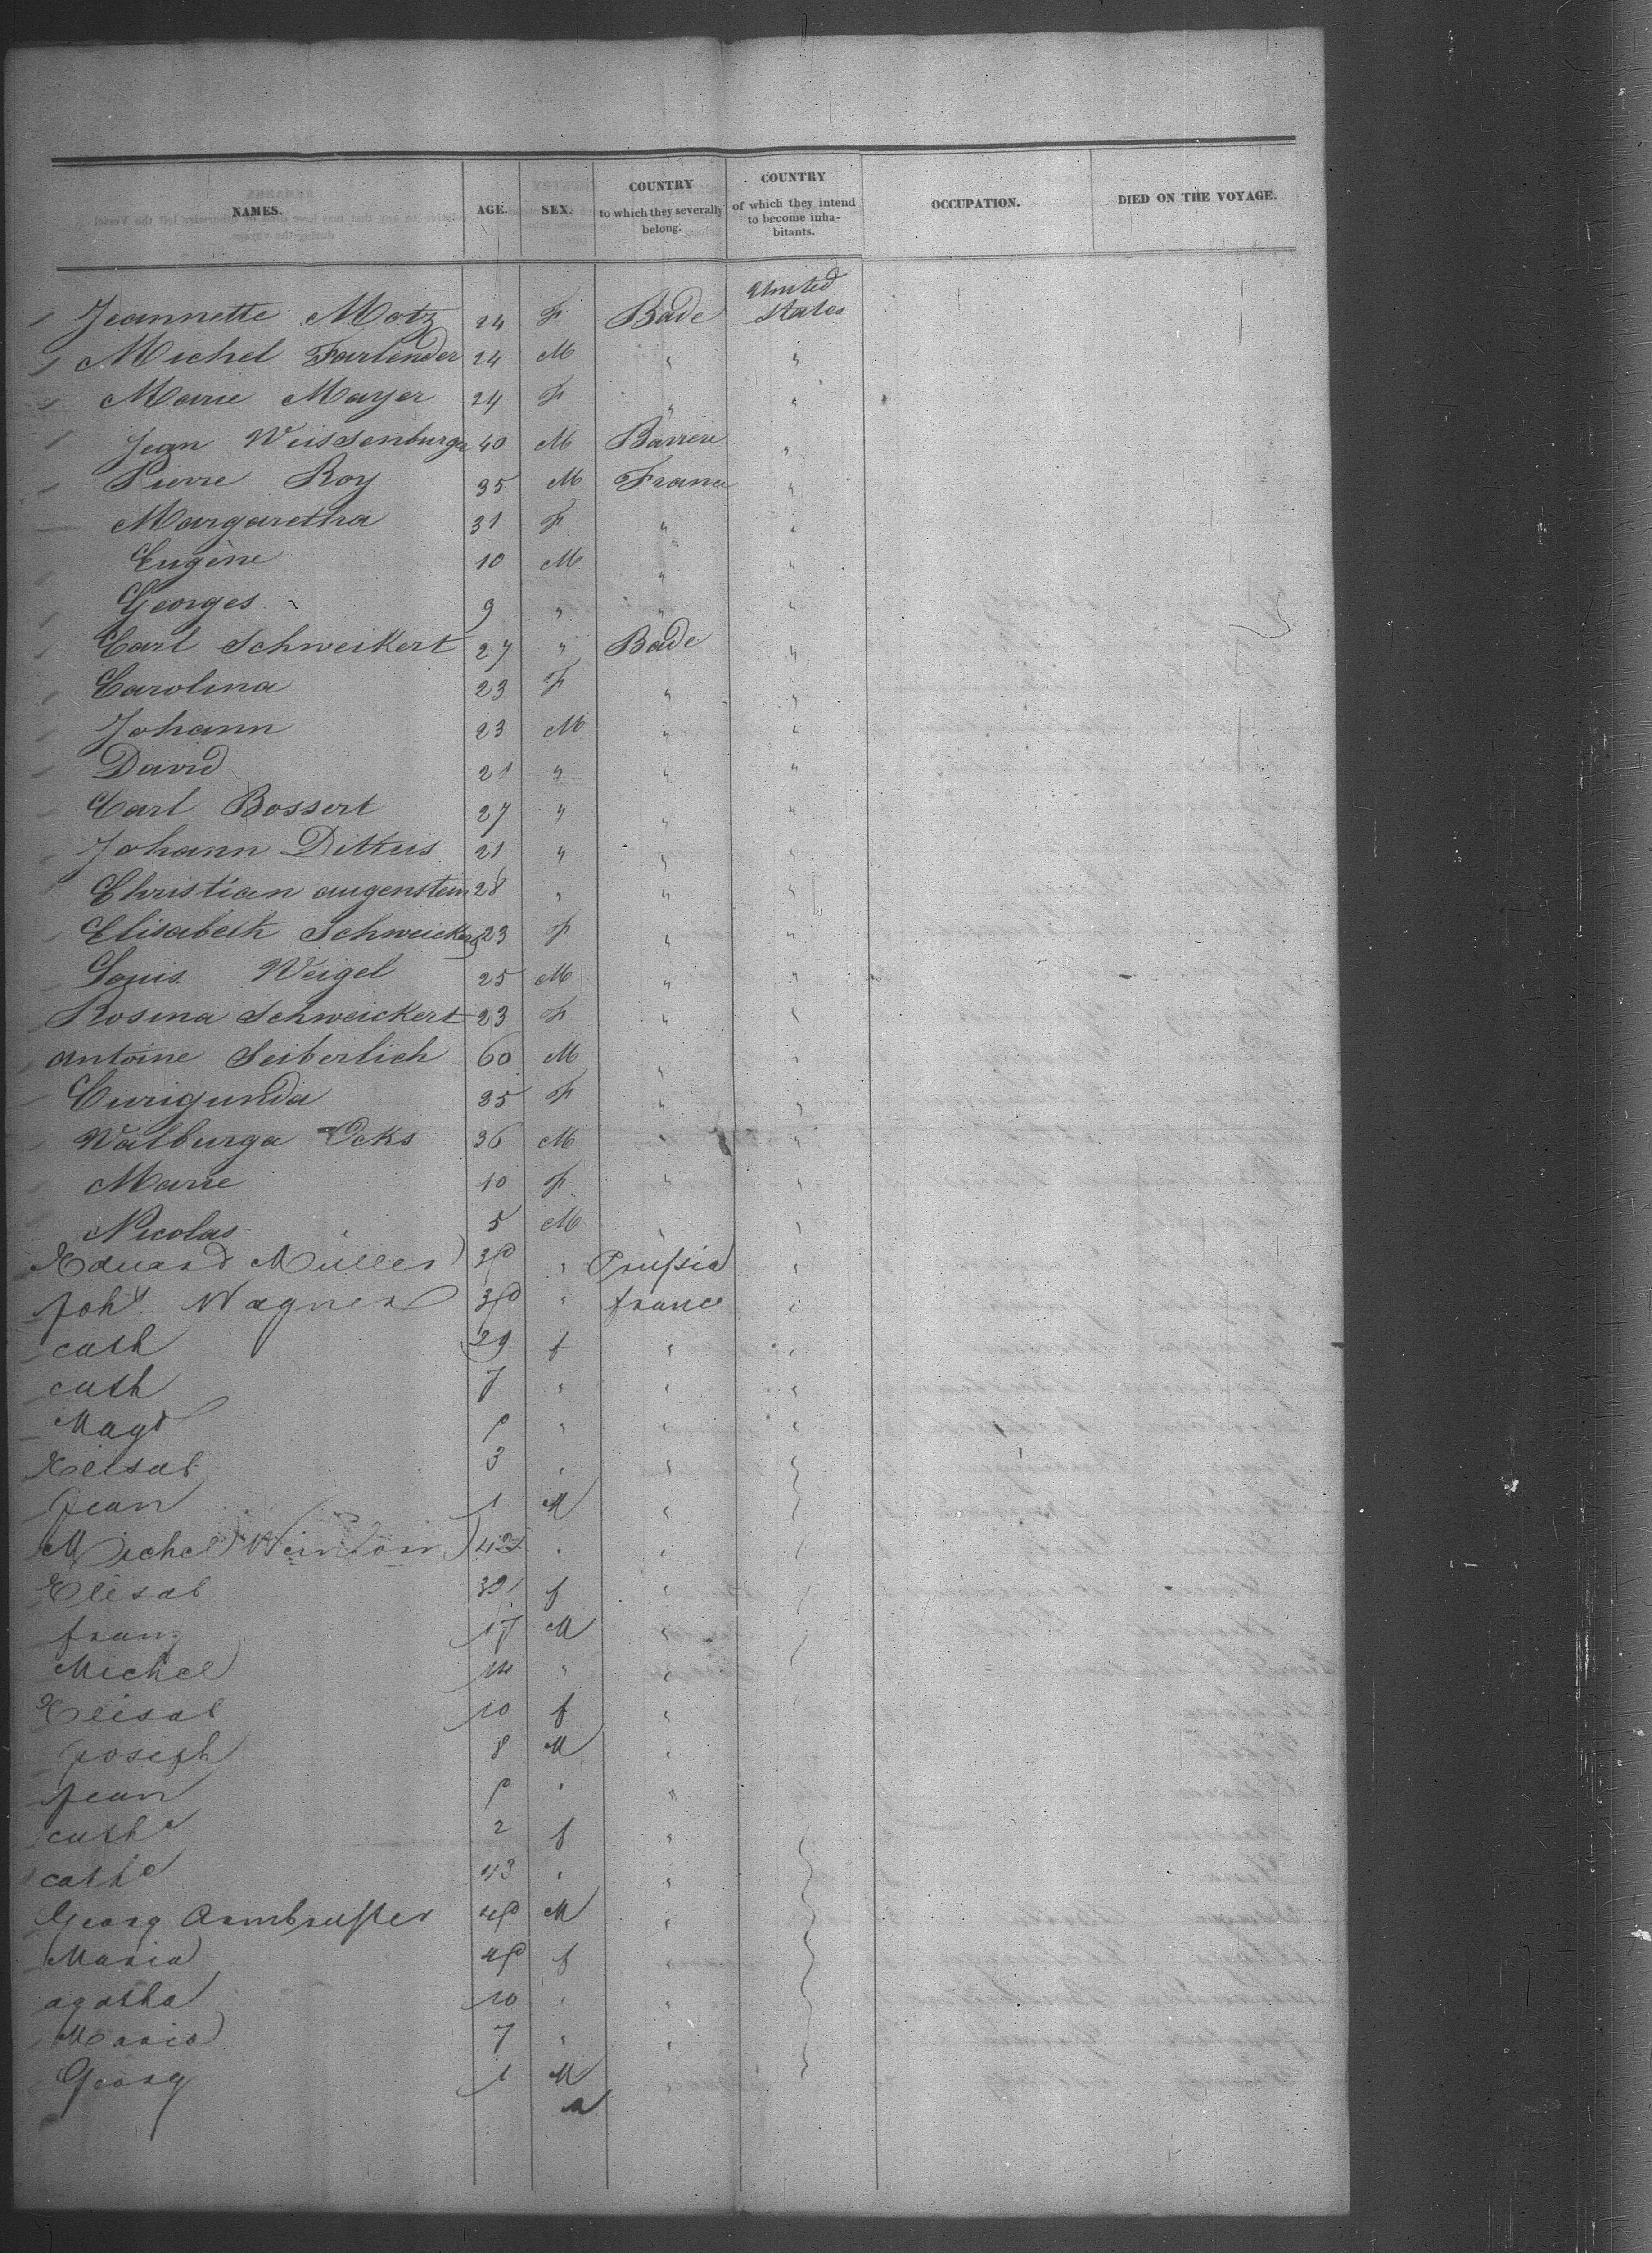 NAMES. AGE. SEX. COUNTRY to which they severally belong. COUNTRY of which they intend to become inhabitants. OCCUPATION. DIED ON THE VOYAGE.
Jeannette Motz 24 F Bade United States
Michel Farlender 24 M " "
Marie Mayer 24 F " "
Jean Weissenburger 40 M Baviere "
Pierre Roy 35 M France "
Margaretha 31 F " "
Eugène 10 M " "
Georges 9 " " "
Carl Schweikert 27 " Bade "
Carolina 23 F " "
Johann 23 M " "
David 21 " " "
Carl Bossert 27 " " "
Johann Dittus 21 " " "
Christian augenstein 28 " " "
Elisabeth Schweickert 23 F " "
Louis Weigel 25 M " "
Rosina Schweickert 23 F " "
Antoine Seiberlich 60 M " "
Cunigunda 35 F " "
Walburga Ocks 36 M " "
Marie 10 F " "
Nicolas 5 M " "
Eduard Müller " Prussia "
Joh Wagner " france "
cath 29 f " "
cath 7 " " "
Magd " " "
Elisab 3 " " "
Jean 1 M "
Michel 42 " "
Elisab f "
franz 17 M "
Michel 14 " "
Elisab 10 f "
Joseph 8 M "
Jean " "
cathe 2 f "
cathe 43 " "
Georg Armbruster M "
Maria f "
agatha 10 " "
Maria 7 " "
Georg 1 M "